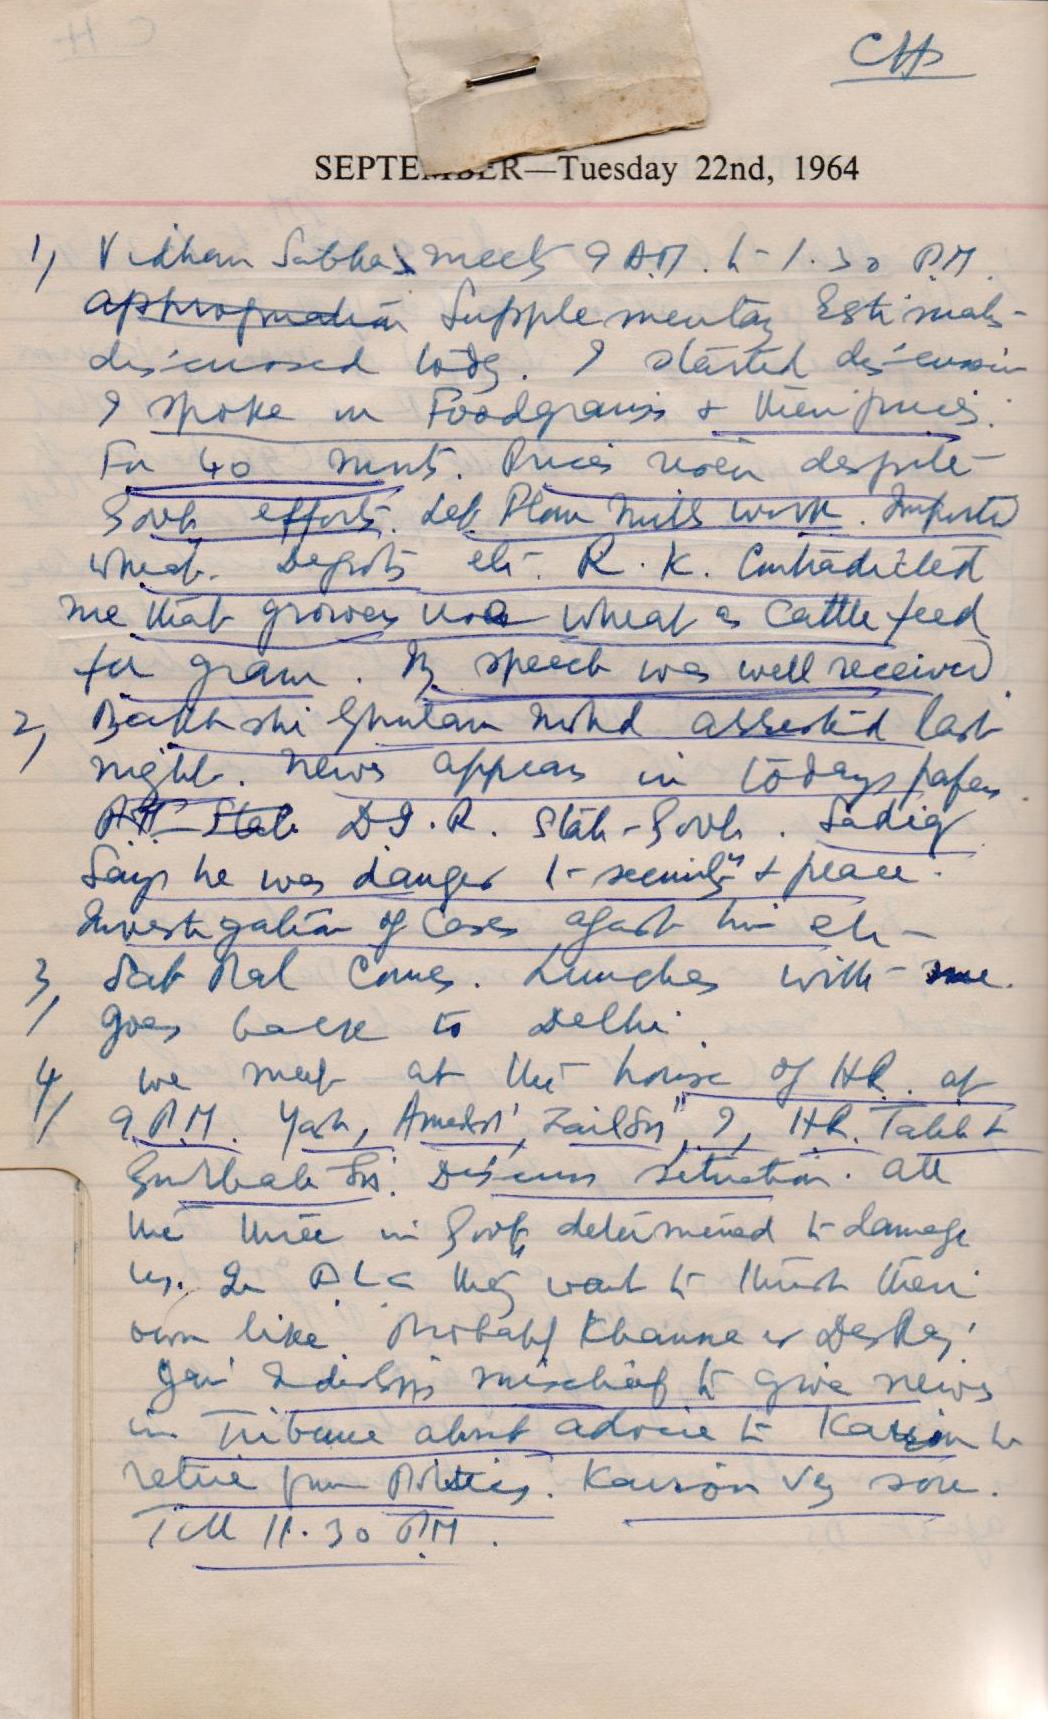 CH
SEPTEMBER—Tuesday 22nd, 1964
1, Vidhan Sabha meets 9 A.M. to 1.30 P.M.
appropriation Supplementary Estimates
discussed today. I started discussion
I spoke on Foodgrains & their prices.
For 40 mnts. Prices risen despite
Govt efforts. Let Flour Mills work. Imported
wheat. Depots etc. R. K. Contradicted
me that growers use wheat as Cattle feed
for gram. My speech was well received.
2, Bakhshi Ghulam Mohd arrested last
night. News appears in todays papers.
State D.I.R. State Govt. Sadiq
Says he was danger to security & peace.
Investigation of Cases agast him etc
3, Sat Pal Comes. Lunches with me.
goes back to Delhi.
4, we meet at the house of H.R. at
9 P.M. Yash, Amar Sn, Zail Sn, I, H.R. Talib &
Gurbak Sn. Discuss situation. All
the three in Govt determined to damage
us. In A L C they want to thrust their
own like. Probably Khanna or Des Raj.
Gen Inderji's mischief to give news
in Tribune about advice to Kairon to
retire from Politics. Kairon Vy sore.
Till 11.30 P.M.